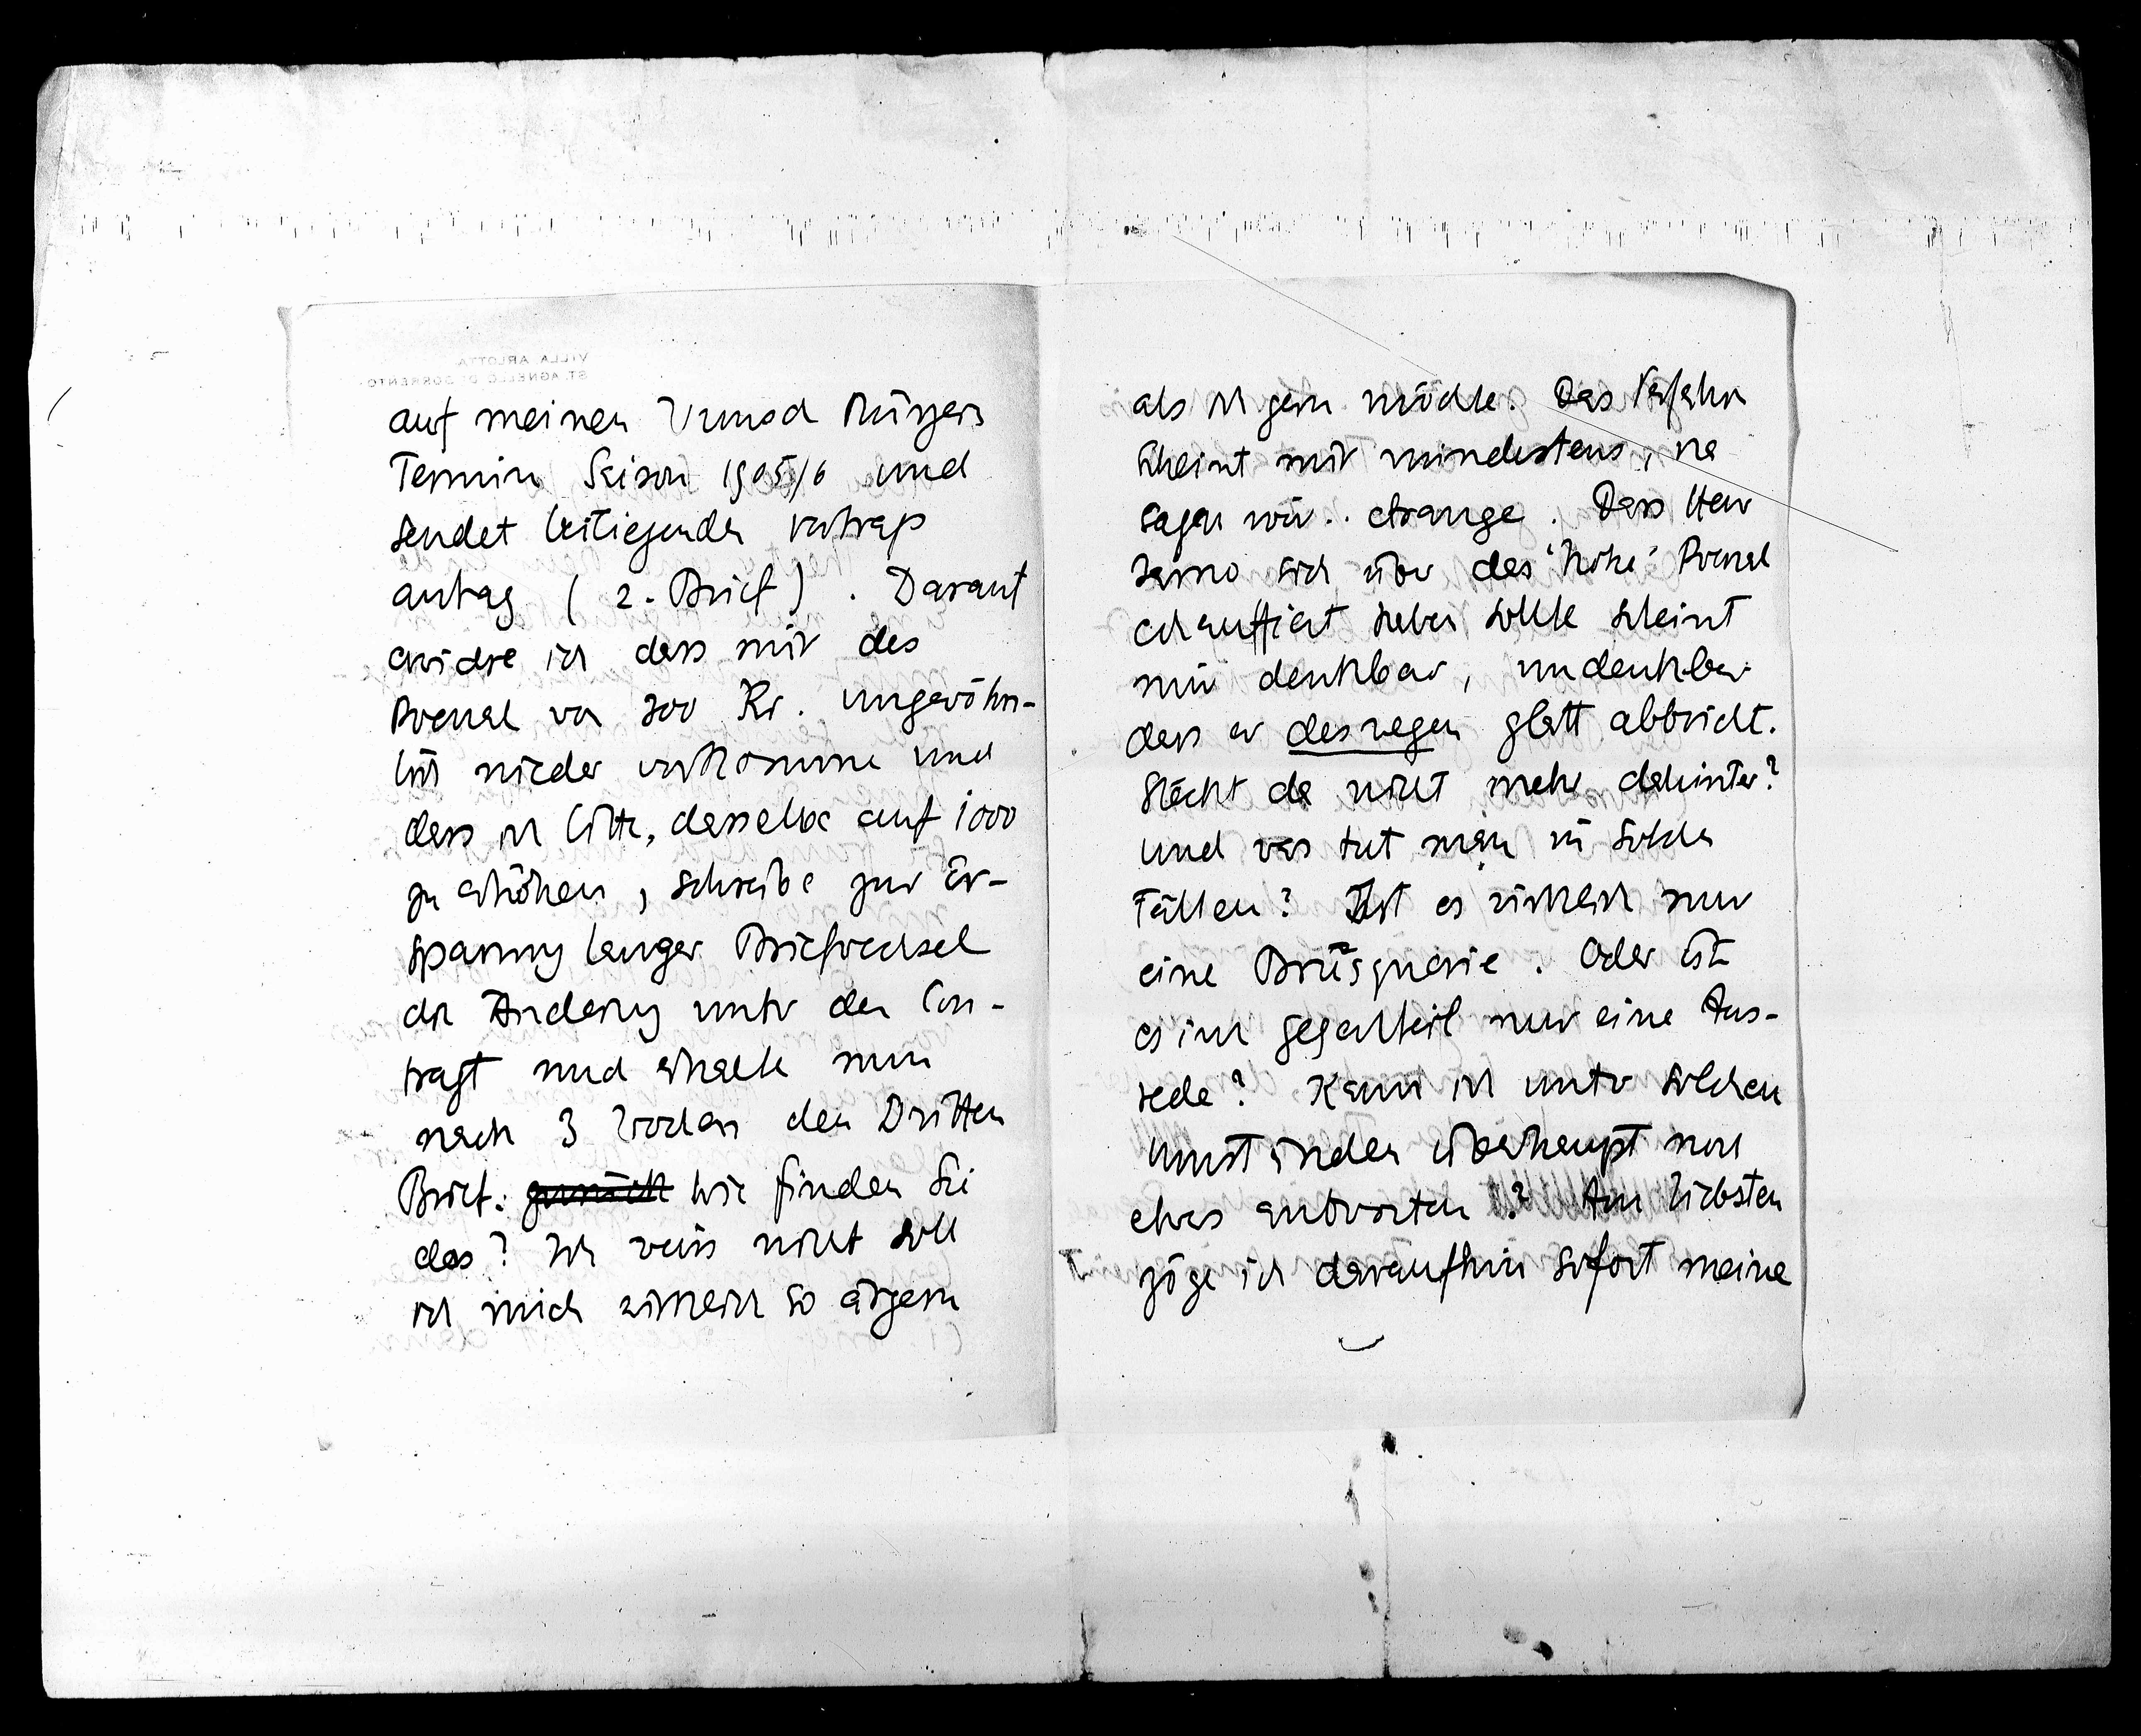 auf meinen Wunsch kürzern
Termin Saison 1905/6 und
sendet beiliegenden Vertrags
antrag (2. Brief). Darauf
erwidre ich dass mir das
Poenal von 200 Kr. ungewöhn-
lich nieder vorkomme und
dass ich bitte, dasselbe auf 1000
zu erhöhen, schreibe zur Er-
sparung langer Briefwechsel
die Änderung unter den Con-
tract und erhalte nun
nach 3 Wochen den Dritten
Brief: zurück Wie finden Sie
das? Ich weiss nicht soll
ich mich wirklich so ärgern
als ich gern möchte. Das Verfahren
scheint mir mindestens, na
sagen wir.. etrange. Dass Herr
Jarno sich über das 'hohe' Poenal
echauffiert haben sollte scheint
mir denkbar, undenkbar
dass er deswegen glatt abbricht.
Steckt da nicht mehr dahinter?
Und was tut man in solchen
Fällen? Ist es wirklich nur
eine Brüsquerie. Oder ist
es im gegenteil nur eine Aus-
rede? Kann ich unter solchen
Umständen überhaupt noch
etwas antworten? Am liebsten
zöge ich daraufhin sofort meine
VILLA ARLOTTA
ST. AGNELLO DI SORRENTO